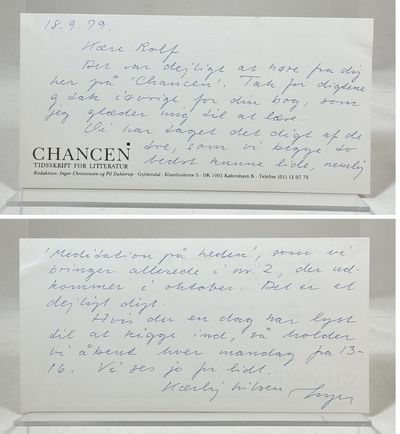 18.9.79.
Kære Rolf
Det var dejligt at høre fra dig
her på 'Chancen'. Tak for digtene
og tak iøvrigt for din bog, som
jeg glæder mig til at læse.
Vi har taget det digt af de
tre, som vi begge to
bedst kunne lide, nemlig
CHANCEN
TIDSSKRIFT FOR LITTERATUR
Redaktion: Inger Christensen og Pil Dahlerup · Gyldendal · Klareboderne 3 · DK 1001 København K · Telefon (01) 11 07 75
'Meditation på heden', som vi
bringer allerede i nr. 2, der ud-
kommer i oktober. Det er et
dejligt digt.
Hvis du en dag har lyst
til at kigge ind, så holder
vi åbent hver mandag fra 13-
16. Vi ses jo for lidt.
Kærlig hilsen Inger